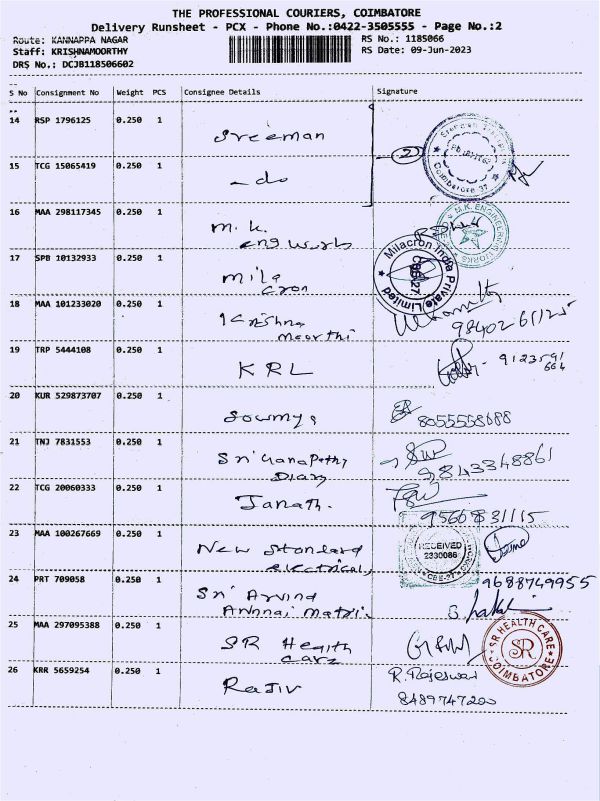 THE PROFESSIONAL COURIERS, COIMBATORE
Delivery Runsheet - PCX - Phone No.:0422-3505555 - Page No.:2
Route: KANNAPPA NAGAR RS No.: 1185066
Staff: KRISHNAMOORTHY RS Date: 09-Jun-2023
DRS No.: DCJB118506602
S No Consignment No Weight PCS Consignee Details Signature
14 RSP 1796125 0.250 1 Sreeman
2
Coimbatore 37
15 TCG 15065419 0.250 1 - do
16 MAA 298117345 0.250 1 M. K. eng works
M.K. ENGINEERING WORKS
17 SPB 10132933 0.250 1 Mila cron
Milacron India Private Limited
CBE-27
18 MAA 101233020 0.250 1 Krishna moorthi
98402 61125
19 TRP 5444108 0.250 1 KRL
9123591 664
20 KUR 529873707 0.250 1 Sowmya
8055558688
21 TNJ 7831553 0.250 1 Sri Ganapathy Diary
9843348861
22 TCG 20060333 0.250 1 Janath.
9566831115
23 MAA 100267669 0.250 1 New Standard electricals
RECEIVED
2330086
CBE-27
24 PRT 709058 0.250 1 Sri Arvind Annai Matri.
9688749955
25 MAA 297095388 0.250 1 SR Health care
SR HEALTH CARE
SR
COIMBATORE
26 KRR 5659254 0.250 1 Rajiv
R. Rajeswari
8489747200